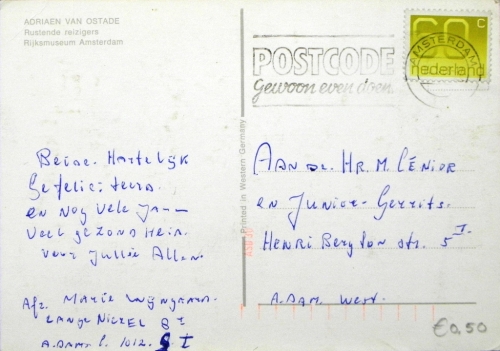 ADRIAEN VAN OSTADE
Rustende reizigers
Rijksmuseum Amsterdam
POSTCODE
Gewoon even doen.
AMSTERDAM
60 c
nederland
Printed in Western Germany
Beide. Hartelijk
Gefeliciteerd.
en nog vele Jaren
veel gezondheid.
voor Jullie Allen.
Afz. Marie Wijngaard.
Lange Niezel 8
A.dam. C. 1012.
Aan de. Hr. M. Cénior
en Junior-Gerrits.
Henri Bergson str. 5 I.
A.dam West.
€0,50